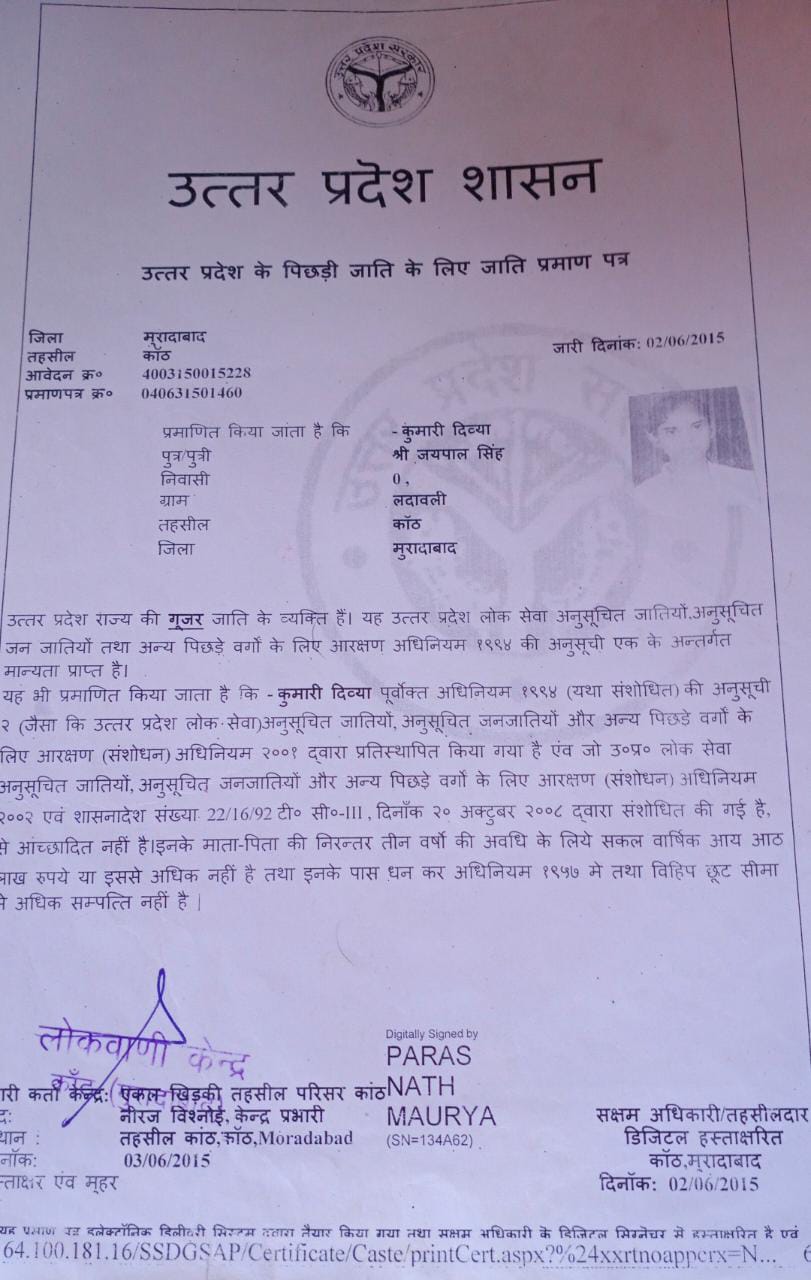 उत्तर प्रदेश सरकार
उत्तर प्रदेश शासन
उत्तर प्रदेश के पिछड़ी जाति के लिए जाति प्रमाण पत्र
जिला मुरादाबाद
तहसील कॉठ
जारी दिनांक: 02/06/2015
आवेदन क्र० 4003150015228
प्रमाणपत्र क्र० 040631501460
प्रमाणित किया जाता है कि - कुमारी दिव्या
पुत्र/पुत्री श्री जयपाल सिंह
निवासी 0 ,
ग्राम लदावली
तहसील कॉठ
जिला मुरादाबाद
उत्तर प्रदेश राज्य की गूजर जाति के व्यक्ति हैं। यह उत्तर प्रदेश लोक सेवा अनुसूचित जातियों,अनुसूचित
जन जातियों तथा अन्य पिछड़े वर्गो के लिए आरक्षण अधिनियम १९९४ की अनुसूची एक के अन्तर्गत
मान्यता प्राप्त है।
यह भी प्रमाणित किया जाता है कि - कुमारी दिव्या पूर्वोक्त अधिनियम १९९४ (यथा संशोधित) की अनुसूची
२ (जैसा कि उत्तर प्रदेश लोक सेवा)अनुसूचित जातियों, अनुसूचित जनजातियों और अन्य पिछड़े वर्गो के
लिए आरक्षण (संशोधन) अधिनियम २००१ द्वारा प्रतिस्थापित किया गया है एंव जो उ०प्र० लोक सेवा
अनुसूचित जातियों, अनुसूचित जनजातियों और अन्य पिछड़े वर्गो के लिए आरक्षण (संशोधन) अधिनियम
२००२ एवं शासनादेश संख्या 22/16/92 टी० सी०-III , दिनाँक २० अक्टुबर २००८ द्वारा संशोधित की गई है,
से आंच्छादित नहीं है।इनके माता-पिता की निरन्तर तीन वर्षो की अवधि के लिये सकल वार्षिक आय आठ
लाख रुपये या इससे अधिक नहीं है तथा इनके पास धन कर अधिनियम १९५७ मे तथा विहिप छूट सीमा
से अधिक सम्पत्ति नहीं है |
लोकवाणी केन्द्र
Digitally Signed by
PARAS
NATH
MAURYA
(SN=134A62)
केन्द्र: एकल खिड़की तहसील परिसर कांठ
नीरज विश्नोई, केन्द्र प्रभारी
तहसील कांठ,कॉठ,Moradabad
03/06/2015
एंव मूहर
सक्षम अधिकारी/तहसीलदार
डिजिटल हस्ताक्षरित
कॉठ,मुरादाबाद
दिनॉक: 02/06/2015
यह प्रमाण पत्र इलेक्ट्रॉनिक डिलीवरी सिस्टम द्वारा तैयार किया गया तथा सक्षम अधिकारी के डिजिटल सिग्नेचर से हस्ताक्षरित है एवं
64.100.181.16/SSDGSAP/Certificate/Caste/printCert.aspx?%24xxrtnoappcrx=N...